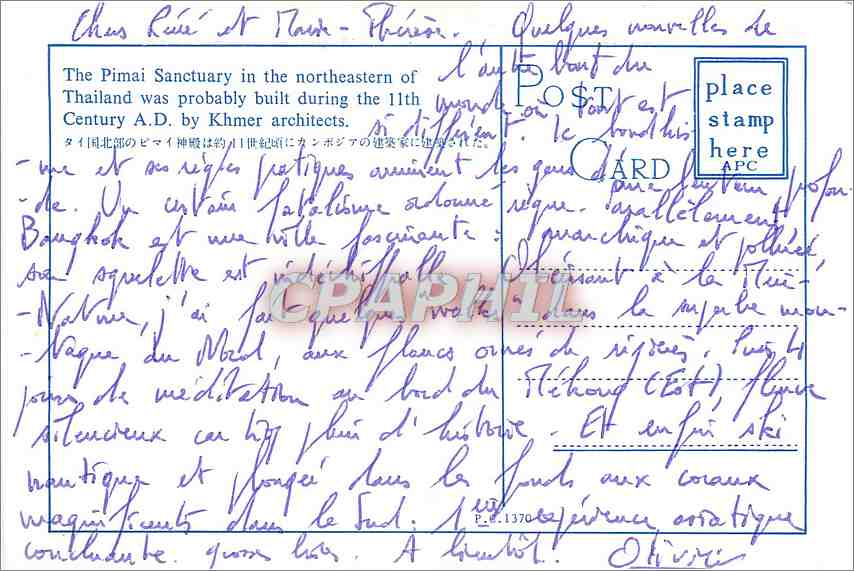 Chers René et Marie-Thérèse. Quelques nouvelles de
l'autre bout du
monde où tout est
si différent. Le bouddhis
-me et ses règles pratiques animent les gens d'une lenteur profon-
-de. Un certain fatalisme ordonné règne. Parallèlement,
Bangkok est une ville fascinante : anarchique et polluée,
son squelette est indéchiffrable. Obéissant à la
-Nature, j'ai fait quelques walks dans la superbe mon-
-tagne du Nord, aux flancs ornés de rizières. Puis 4
jours de méditation au bord du Mékong (Est), fleuve
silencieux car trop plein d'histoire. Et enfin ski
nautique et plongée dans les fonds aux coraux
magnifiscents dans le Sud. 1ère expérience asiatique
concluante. grosses bises. A bientôt. Olivier
The Pimai Sanctuary in the northeastern of
Thailand was probably built during the 11th
Century A.D. by Khmer architects.
タイ国北部のピマイ神殿は約11世紀頃にカンボジアの建築家に建築された。
POST
CARD
place
stamp
here
APC
P.C.1370
CPAPHIL